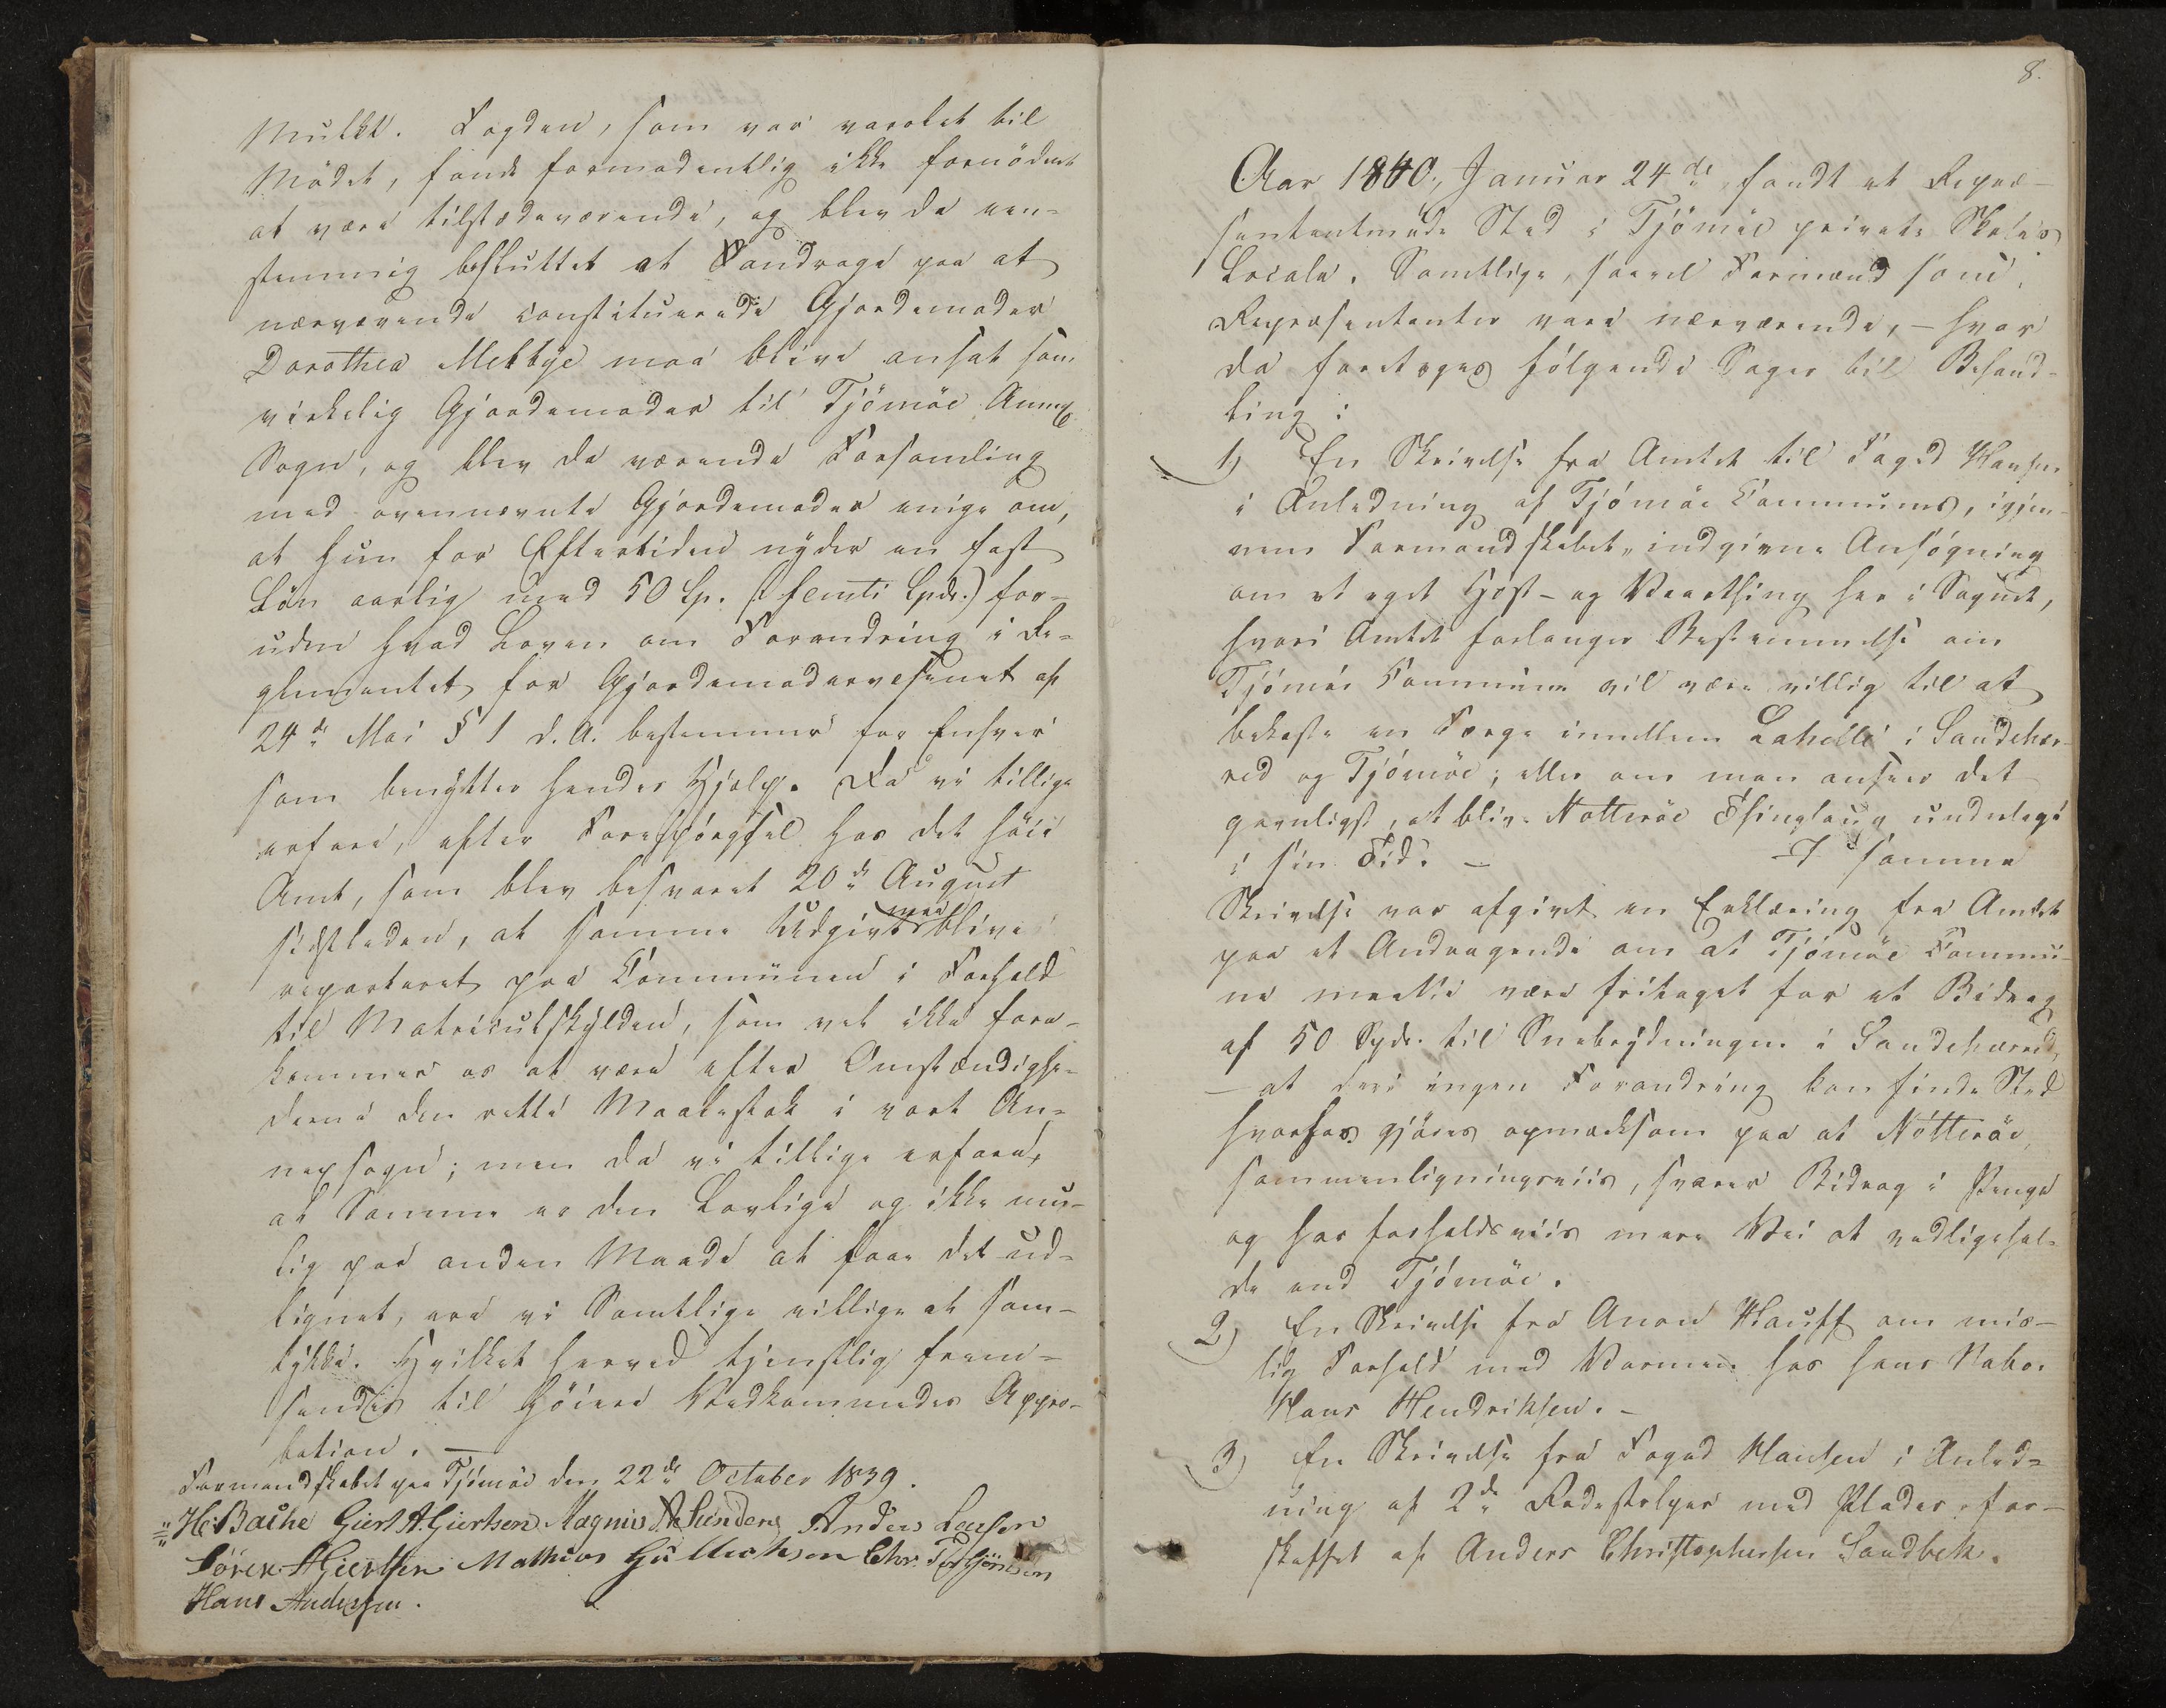 Mulkt. Fogden, som var varslet til
Mödet, fandt formodentlig ikke fornödent
at være tilstædeværende, og blev da een-
stemmig besluttet at Andrage paa at
nærværende constituerede Gjordemoder
Dorothea Melbye maa blive ansat som
virkelig Gjordemoder til Tjömöe Annex
Sogn, og blev da værende Forsamling
med ovennævnte Gjordemoder enige om,
at hun for Eftertiden nyder en fast
Lön aarlig med 50 Sp. (femti Spdr.) for-
uden hvad Loven om Forandring i Re-
glementet for Gjordemodervæsenet af
24de Mai § 1 d. A. bestemmer for Enhver
som benytter hendes Hjelp. Da vi tillige
erfare, efter Forespörgsel hos det höie
Amt, som blev besvaret 20de August
sidstleden, at samme Udgivt maa blive
reparteret paa Communen i Forhold
til Matriculskylden, som vel ikke fore-
kommer os at være efter Omstændighe-
derne den rette Maalestok i vort An-
nexsogn; men da vi tillige erfare,
at Samme er den Lovlige og ikke mu-
lig paa anden Maade at faae det ud-
lignet, ere vi Samtlige villige at sam-
tykke. Hvilket herved tjenstlig frem-
sendes til Höiere Vedkommendes Appro-
bation. —
Formandskabet paa Tjömöe den 22de October 1839.
H. Bache Giert A. Giertsen Magnus A. Sundene Anders Larsen
Sören A Giertsen Mathias Gullichsen Chr. Torgjönsen
Hans Andersen.
8.
Aar 1840, Januar 24de, fandt et Repræ-
sentantmöde Sted i Tjömöe private Skoles
Locale. Samtlige, saavel Formænd som
Repræsentanter vare nærværende, — hvor
da foretoges fölgende Sager til Behand-
ling:
1) En Skrivelse fra Amtet til Foged Hansen
i Anledning af Tjömöe Communes, igjen-
nem Formandskabet, indgivne Ansögning
om et eget Höst- og Vaarthing her i Sognet,
hvori Amtet forlanger Bestemmelse om
Tjömöe Commune vil være villig til at
bekoste en Færge imellem Lahelle i Sandehær-
red og Tjömöe; eller om man anseer det
gavnligst, at blive Nötteröe Thinglaug underlagt
i sin Tid. — I samme
Skrivelse var afgivet en Erklæring fra Amtet
paa et Andragende om at Tjömöe Commu-
ne maatte være fritaget for et Bidrag
af 50 Spdr. til Snebrydningen i Sandehærred,
— at deri ingen Forandring kan finde Sted
hvorhos gjöres opmærksom paa at Nötteröe,
sammenligningsviis, svarer Bidrag i Penge
og har forholdsviis mere Vei at vedligehol-
de end Tjömöe.
2) En Skrivelse fra Anon Hauff om mis-
lig Forhold med Varmen hos hans Nabo
Hans Hendriksen. —
3) En Skrivelse fra Foged Hansen i Anled-
ning af 2de Rodestolper med Plader, for-
skaffet af Anders Christophersen Sandbek.